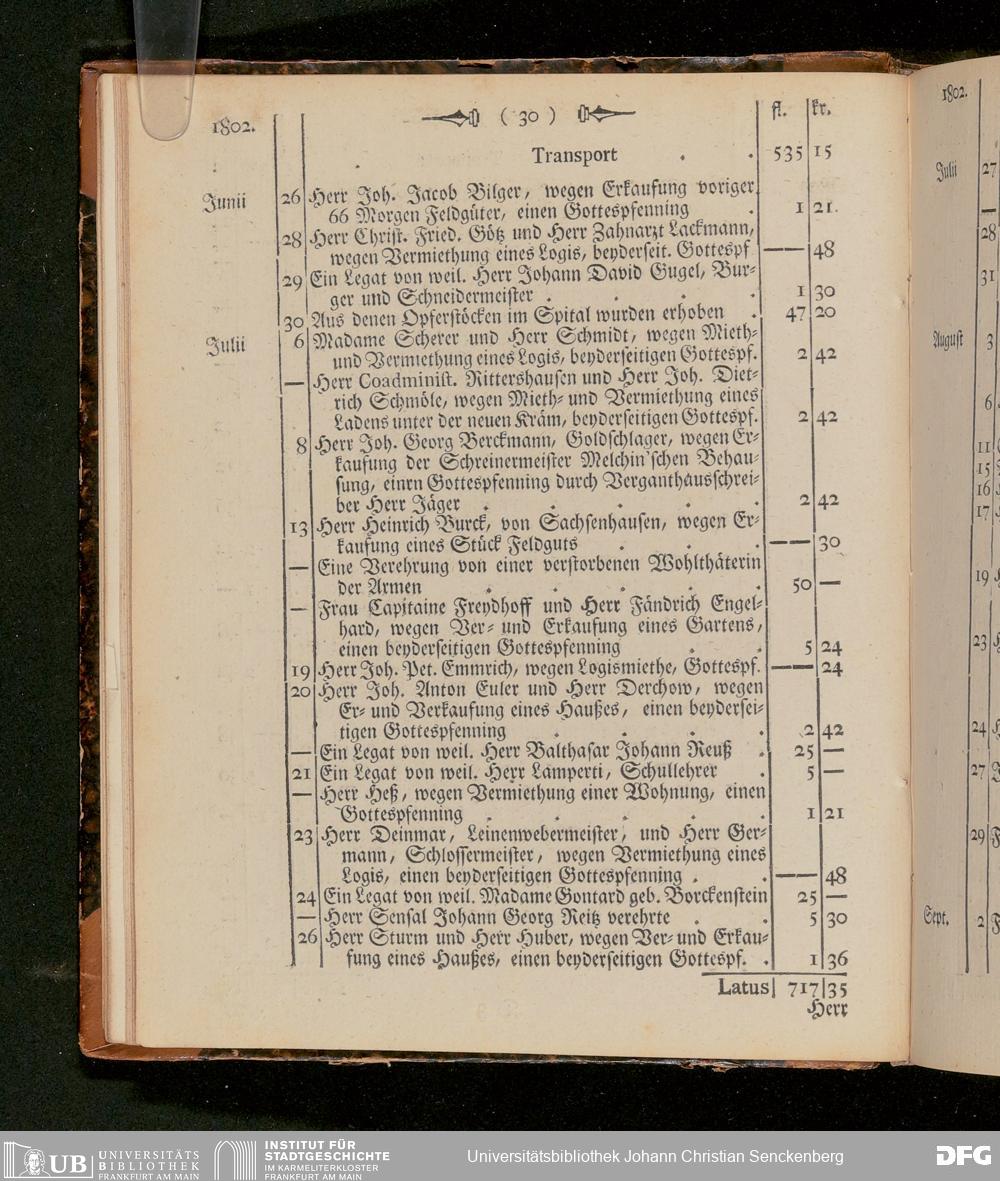 1802.
( 30 )
fl. kr.
Transport . . 535 15
Junii 26 Herr Joh. Jacob Bilger, wegen Erkaufung voriger
66 Morgen Feldgüter, einen Gottespfenning . 1 21.
28 Herr Christ. Fried. Götz und Herr Zahnarzt Lackmann,
wegen Vermiethung eines Logis, beyderseit. Gottespf —— 48
29 Ein Legat von weil. Herr Johann David Gugel, Bur-
ger und Schneidermeister . . . . 1 30
30 Aus denen Opferstöcken im Spital wurden erhoben . 47 20
Julii 6 Madame Scherer und Herr Schmidt, wegen Mieth-
und Vermiethung eines Logis, beyderseitigen Gottespf. 2 42
— Herr Coadminist. Rittershausen und Herr Joh. Diet-
rich Schmöle, wegen Mieth- und Vermiethung eines
Ladens unter der neuen Kräm, beyderseitigen Gottespf. 2 42
8 Herr Joh. Georg Berckmann, Goldschlager, wegen Er-
kaufung der Schreinermeister Melchin'schen Behau-
sung, einrn Gottespfenning durch Verganthausschrei-
ber Herr Jäger . . . . . 2 42
13 Herr Heinrich Burck, von Sachsenhausen, wegen Er-
kaufung eines Stück Feldguts . . . —— 30
— Eine Verehrung von einer verstorbenen Wohlthäterin
der Armen . . . . . 50 —
— Frau Capitaine Freydhoff und Herr Fändrich Engel-
hard, wegen Ver- und Erkaufung eines Gartens,
einen beyderseitigen Gottespfenning . . 5 24
19 Herr Joh. Pet. Emmrich, wegen Logismiethe, Gottespf. —— 24
20 Herr Joh. Anton Euler und Herr Derchow, wegen
Er- und Verkaufung eines Haußes, einen beydersei-
tigen Gottespfenning . . . . 2 42
— Ein Legat von weil. Herr Balthasar Johann Reuß . 25 —
21 Ein Legat von weil. Herr Lamperti, Schullehrer . 5 —
— Herr Heß, wegen Vermiethung einer Wohnung, einen
Gottespfenning . . . . . 1 21
23 Herr Deinmar, Leinenwebermeister, und Herr Ger-
mann, Schlossermeister, wegen Vermiethung eines
Logis, einen beyderseitigen Gottespfenning . . —— 48
24 Ein Legat von weil. Madame Gontard geb. Borckenstein 25 —
— Herr Sensal Johann Georg Reitz verehrte . . 5 30
26 Herr Sturm und Herr Huber, wegen Ver- und Erkau-
fung eines Haußes, einen beyderseitigen Gottespf. . 1 36
Latus 717 35
Herr
1802.
Julii 27
—
28
31
August 3
6
11
15
16
17
19
23
24
27
29
Sept. 2
UB UNIVERSITÄTS
BIBLIOTHEK
FRANKFURT AM MAIN
INSTITUT FÜR
STADTGESCHICHTE
IM KARMELITERKLOSTER
FRANKFURT AM MAIN
Universitätsbibliothek Johann Christian Senckenberg
DFG